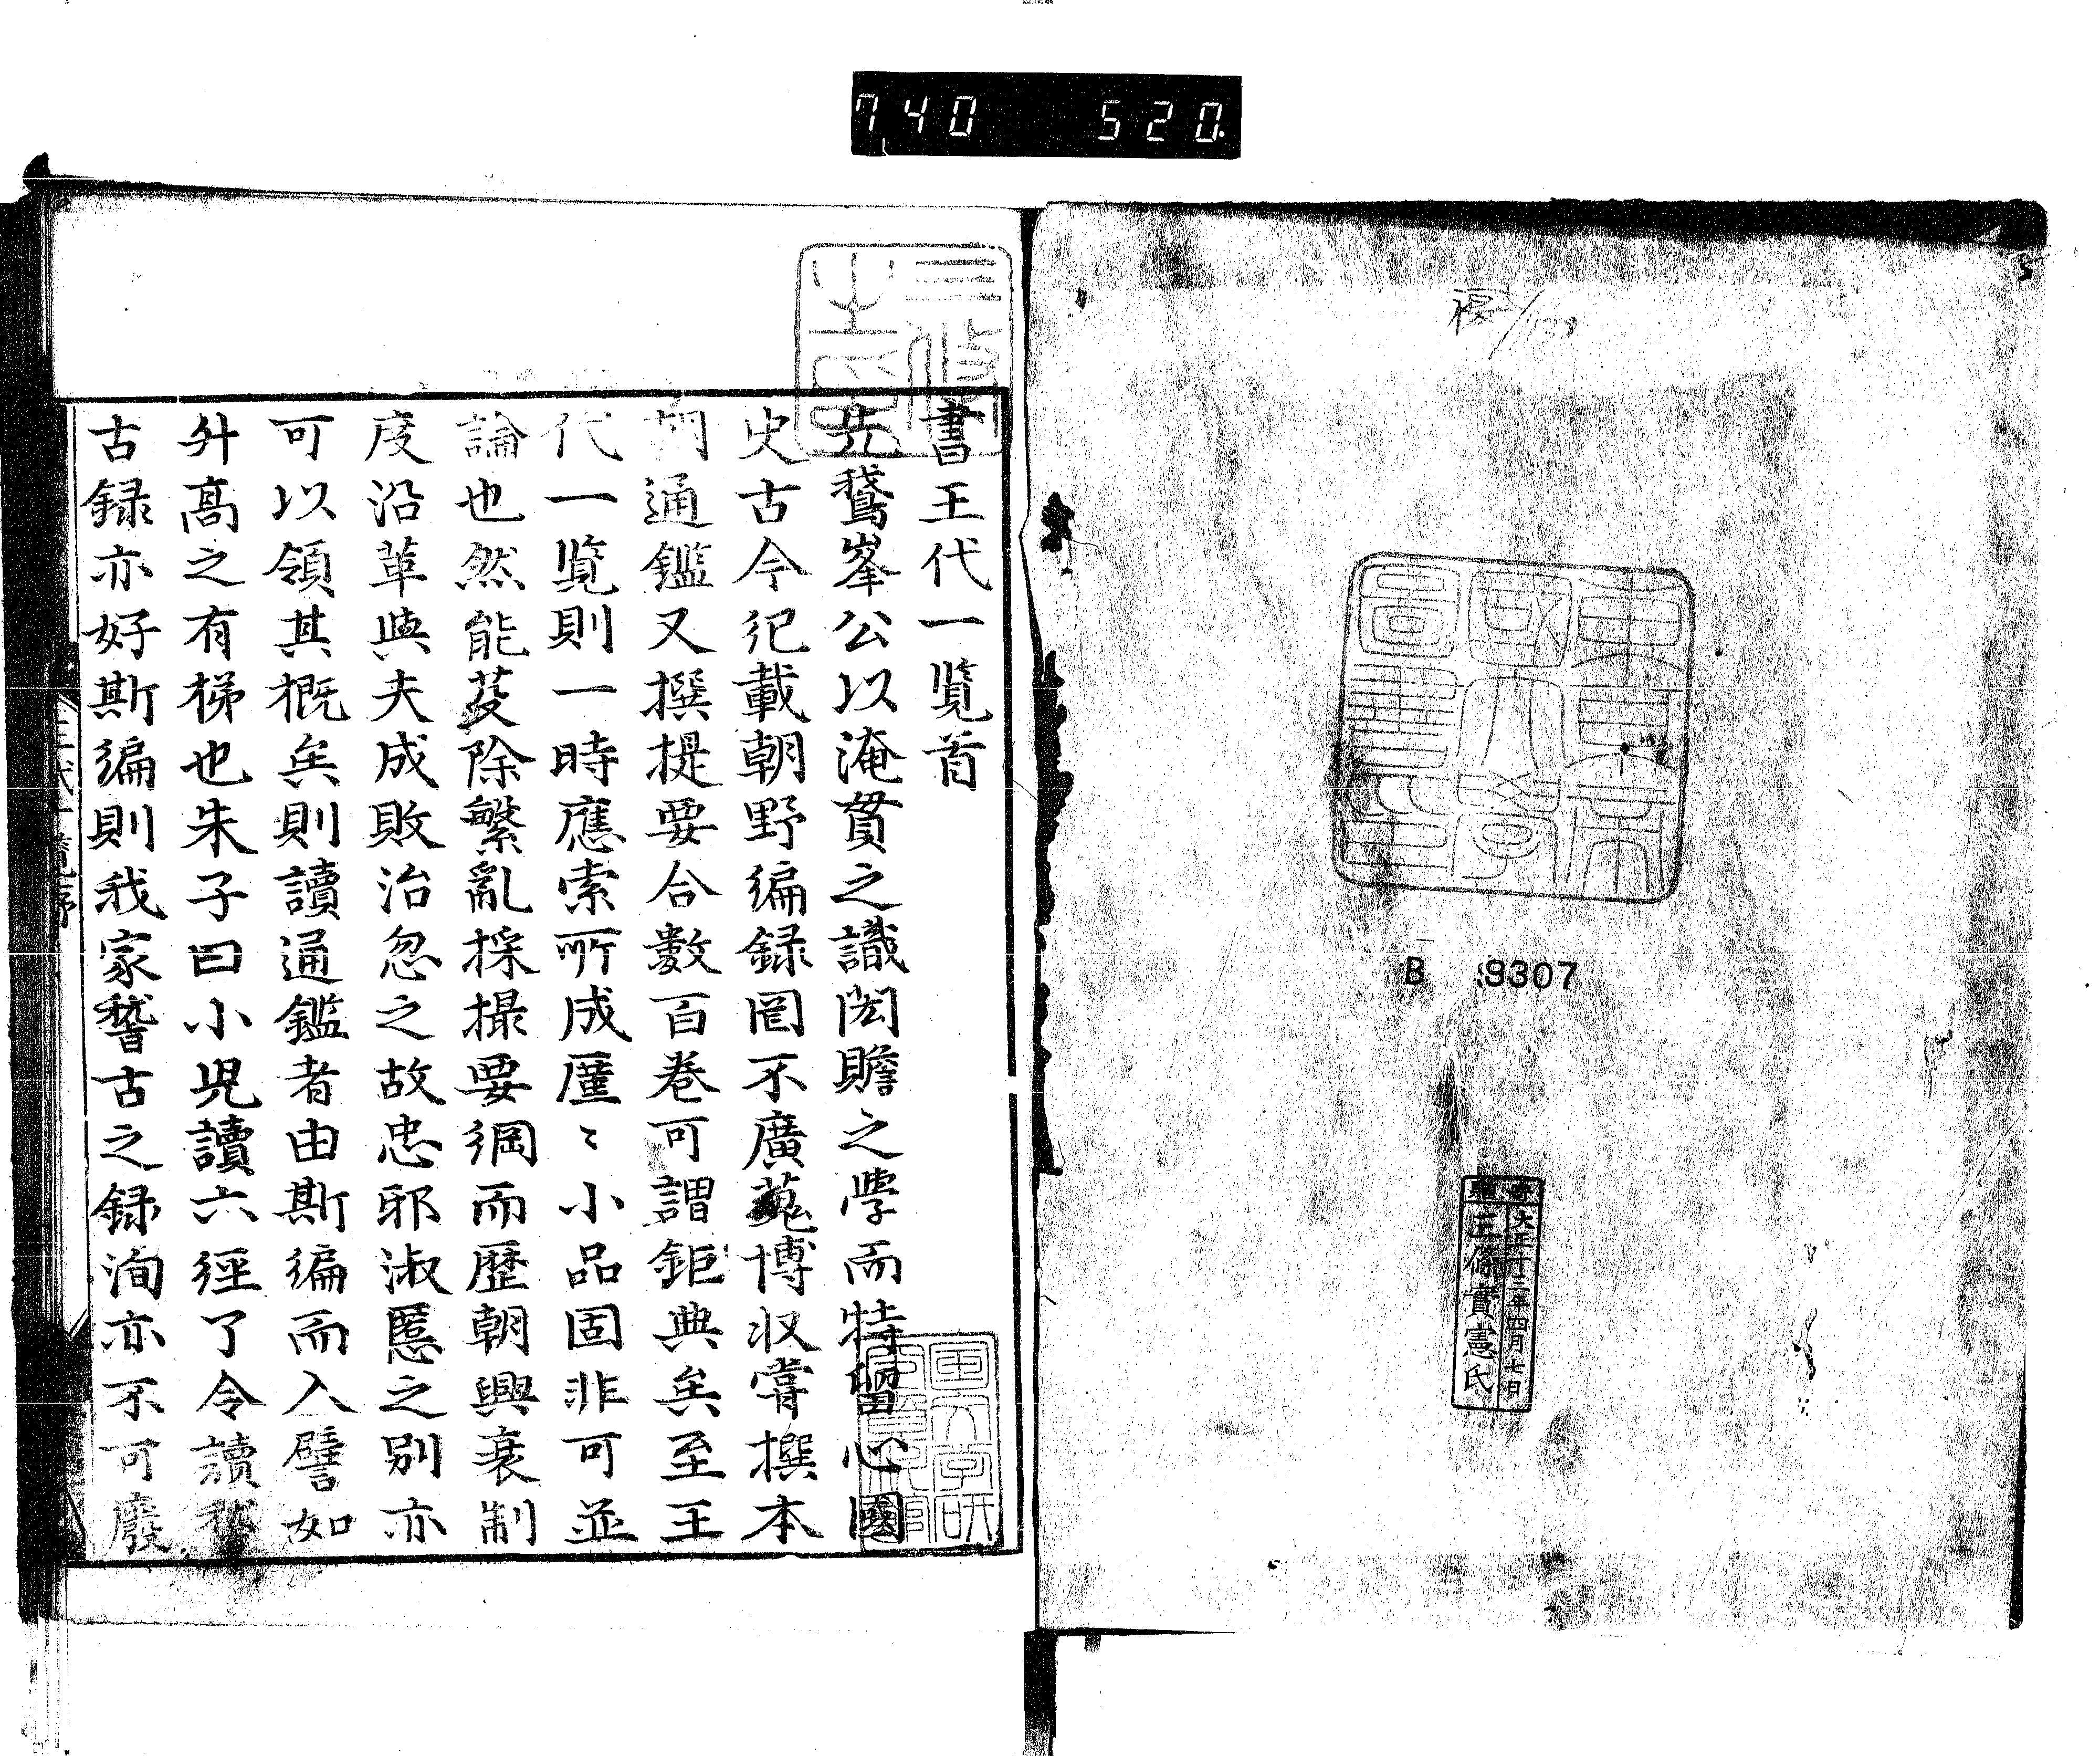 740 520.
東京帝
國大學
圖書印
B 9307
寄
贈
大正十三年四月七日
三條實憲氏
書王代一覧首
先鵞峯公以淹貫之識閎贍之學而特留心國
史古今紀載朝野編録罔不廣蒐博収甞撰本
朝通鑑又撰提要合數百巻可謂鉅典矣至王
代一覧則一時應索所成廑〻小品固非可並
論也然能芟除繁亂採撮要綱而歴朝興衰制
度沿革與夫成敗治忽之故忠邪淑慝之別亦
可以領其概矣則讀通鑑者由斯編而入譬如
升高之有梯也朱子曰小児讀六經了令讀稽
古録亦好斯編則我家稽古之録洵亦不可廢